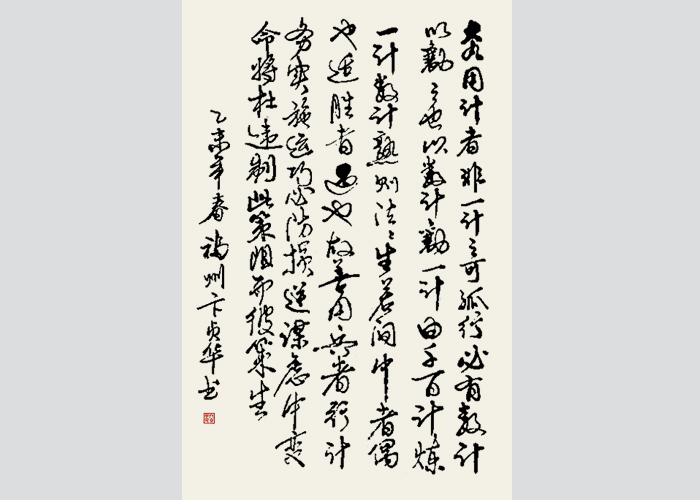 大凡用计者非一计之可孤行必有数计
以勷之也以数计勷一计由千百计炼
一计数计熟则法法生若间中者偶
也适胜者遇也故善用兵者行计
务实施运巧必防损逆谋虑中变
命将杜违制此策阻而彼策生
乙未年春福州卞贞华书